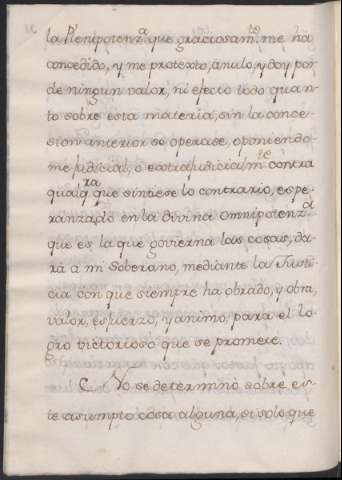 la Plenipotenz.a que graciosam.te me ha
concedido, y me protexto, anulo, y doy por
de ningun valor, ni efecto todo quan-
to sobre esta materia, sin la conce-
sion anterior se operase, oponiendo-
me judicial, o extrajudicialm.te contra
qualq.ra que sintiese lo contrario, espe-
ranzado en la divina Omnipotenz.a
que es la que govierna las cosas, da-
rá a mi Soberano, mediante la Justi-
cia con que siempre ha obrado, y obra,
valor, esfuerzo, y animo, para el lo-
gro victorioso que se promete.
No se determinó sobre es-
te asumpto cosa alguna, si solo que